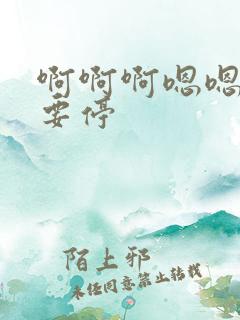 啊啊啊嗯嗯
要停
陌上邪
未经同意禁止转载